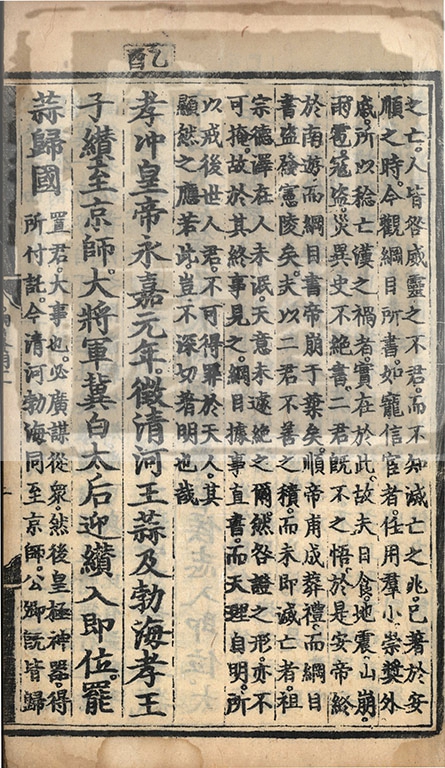 乙酉
之亡。人皆咎威靈之不君。而不知滅亡之兆。已著於安
順之時。今觀綱目所書。如寵信宦者。任用羣小崇獎外
戚。所以稔亡漢之禍者。實在於此。故夫日食。地震山崩。
雨雹。寇盜。災異史不絕書。二君既不之悟。於是安帝終
於南遊而綱目書帝崩于葉矣。順帝甫成葬禮而綱目
書盜發憲陵矣。夫以二君不善之積。而未即滅亡者。祖
宗德澤在人未泯。天意未遽絕之爾。然咎證之形。亦不
可掩。故於其終事見之。綱目據事直書。而天理自明。所
以戒後世人君。不可得罪於天人。其
顯然之應若此。豈不深切著明也哉
孝冲皇帝永嘉元年。徵清河王蒜及勃海孝王
子纘至京師。大將軍冀白太后迎纘入即位。罷
蒜歸國
置君。大事也。必廣謀從衆。然後皇極神器。得
所付託。今清河勃海同至京師。公卿既皆歸